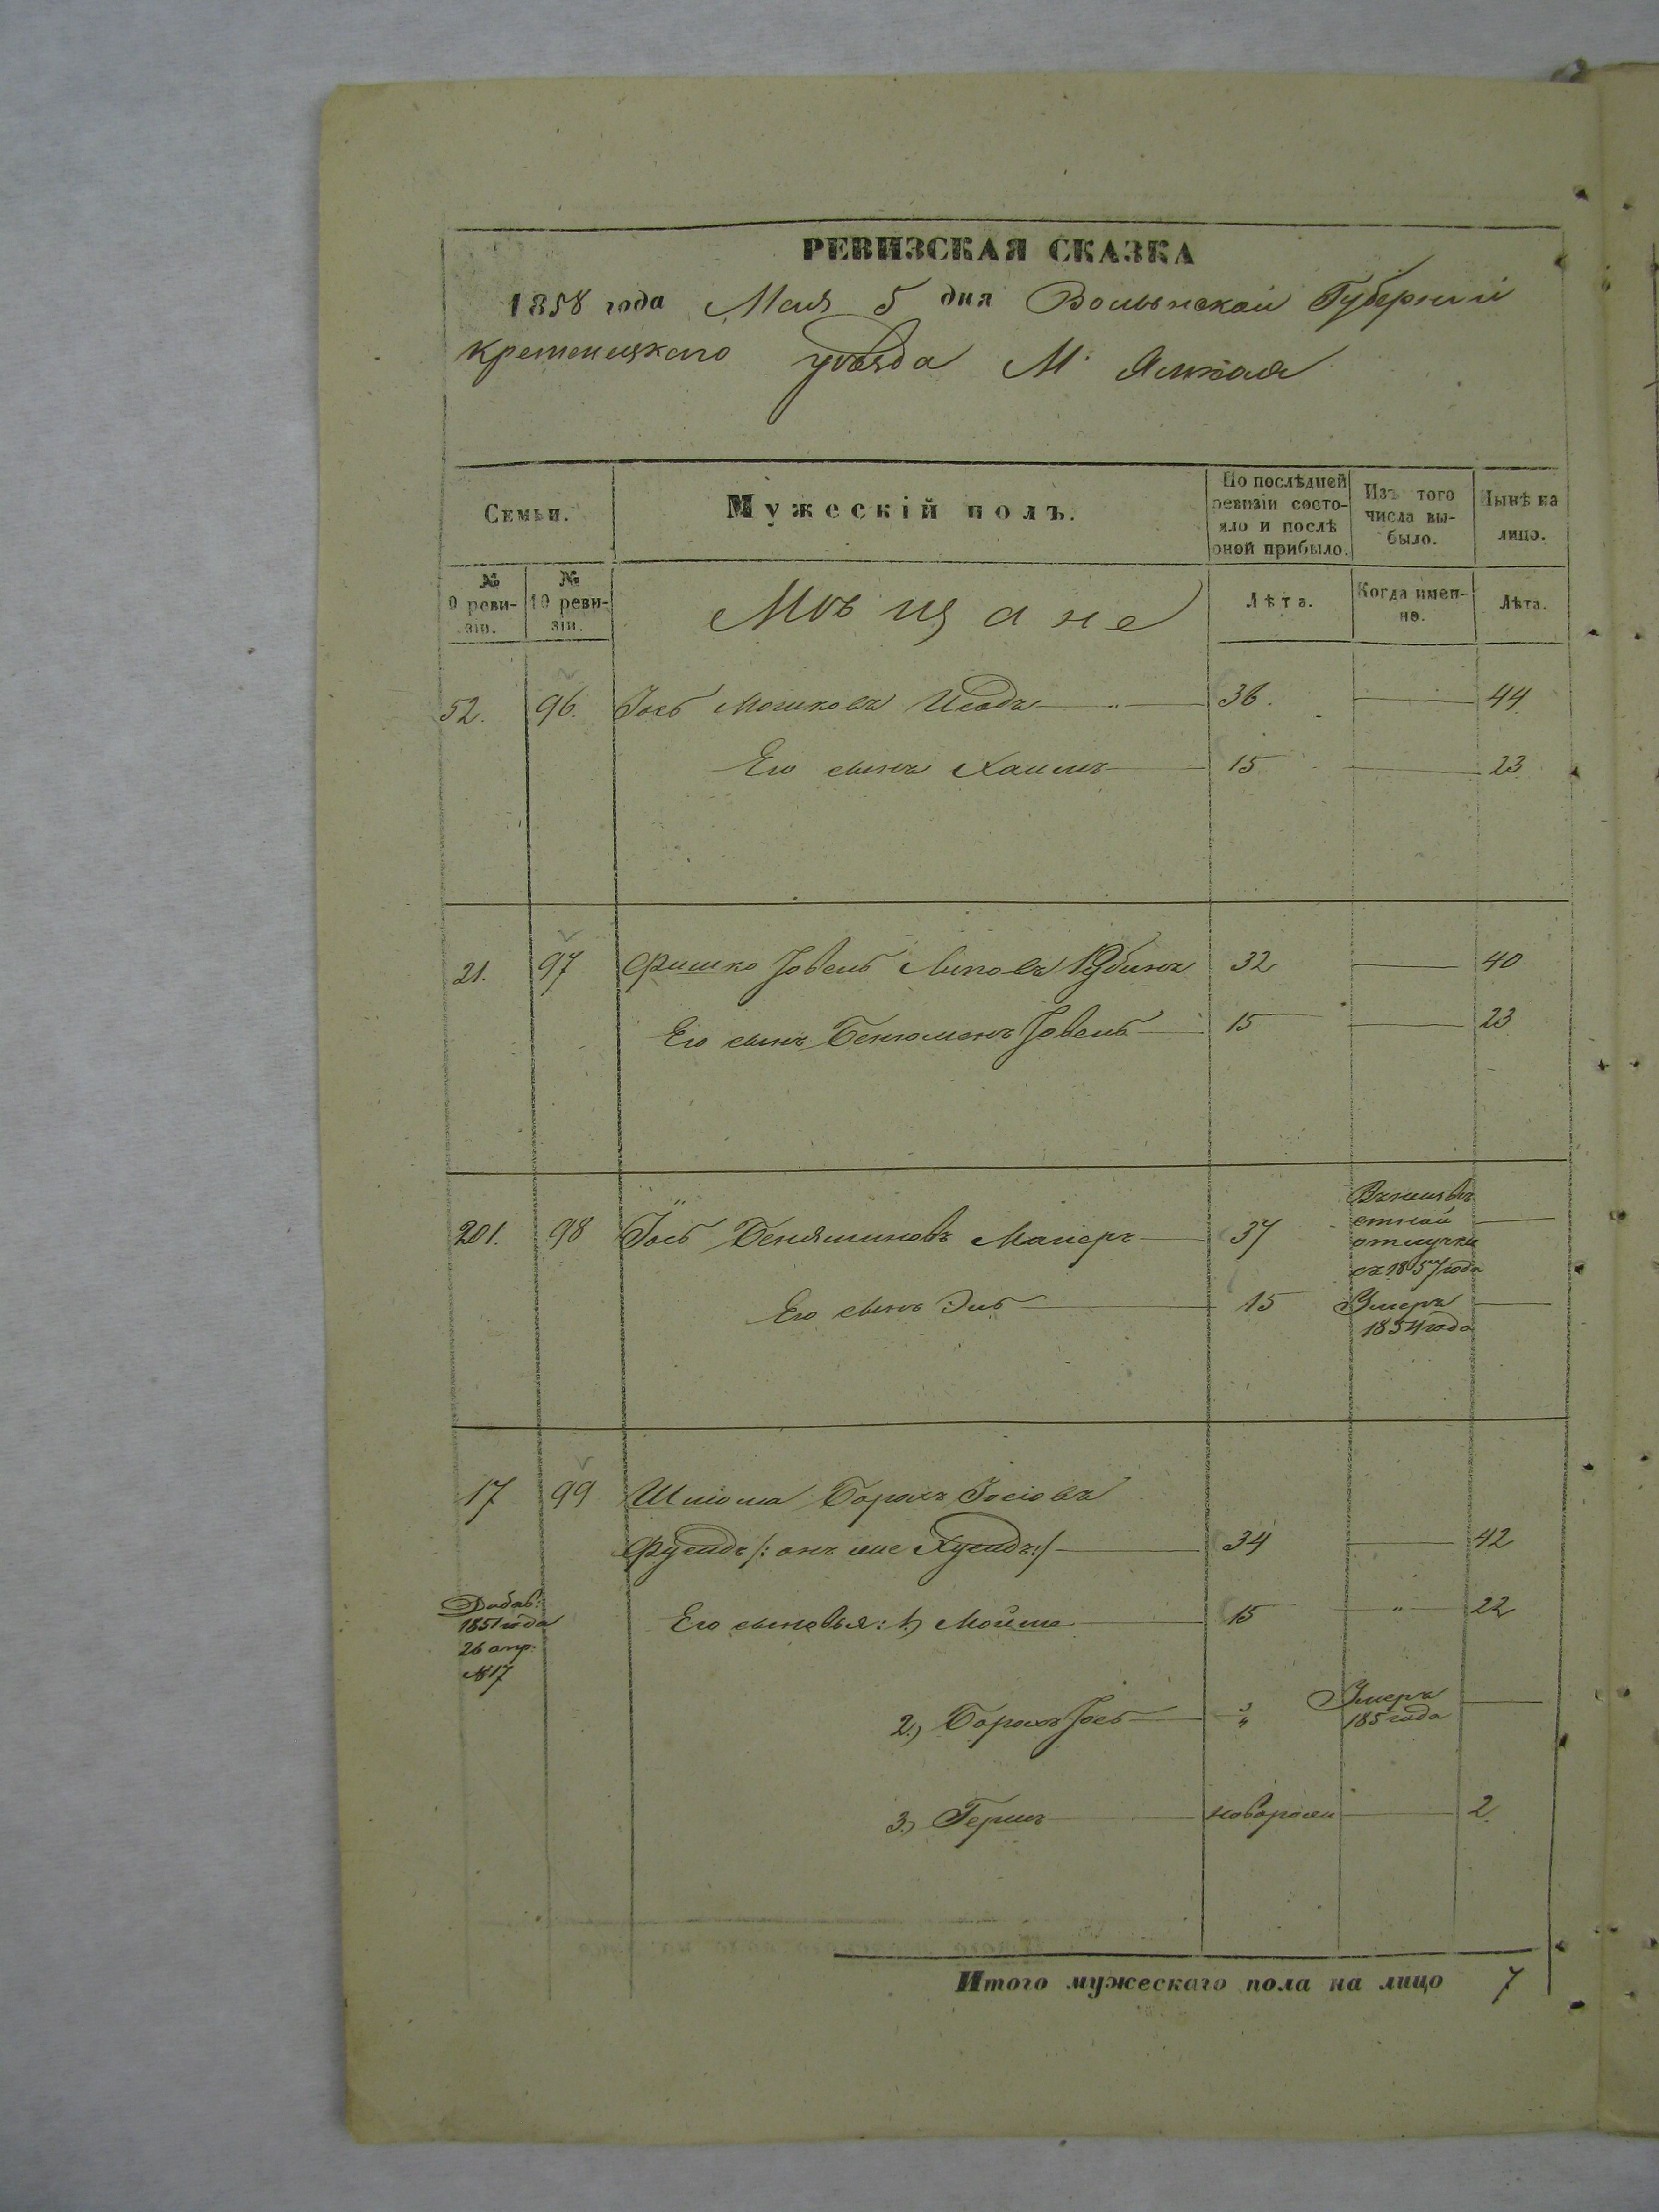 РЕВИЗСКАЯ СКАЗКА
1858 года Мая 5 дня Волынской Губерніи
Кременецкаго уѣзда М. Ямполя
Семьи.
Мужескій полъ.
По послѣдней ревизіи состояло и послѣ оной прибыло.
Изъ того числа выбыло.
Нынѣ на лицо.
№ 9 ревизіи.
№ 10 ревизіи.
Мѣщане
Лѣта.
Когда именно.
Лѣта.
52. 96. Іось Мошковъ 36. 44
Его сынъ Хаимъ 15 23
21. 97 Фишко Іовель Липовъ Рубинъ 32 40
Его сынъ Бенюменъ Іовель 15 23
201. 98 Іось Беняминовъ Маперъ 37
отлучки
съ 1857 года
Его сынъ Эль 15 Умеръ
1854 года
17 99 Шліома Борохъ Іосіовъ
Фусидъ /: онъ же Хусидъ :/ 34 42
Добав:
1851 года
26 апр.
№ 17
Его сыновья: 1.) Мойше 15 " 22
2.) Борохъ Іось 3/4 Умеръ
185 года
3.) Герша новорожд 2.
Итого мужескаго пола на лицо 7